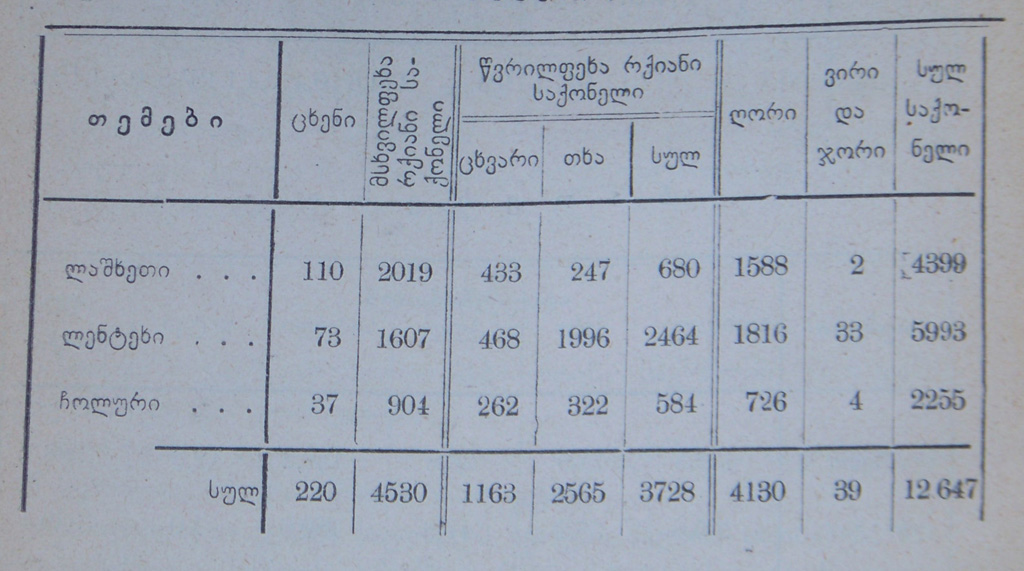 თემები
ცხენი
მსხვილფეხა
რქიანი სა-
ქონელი
წვრილფეხა რქიანი
საქონელი
ცხვარი
თხა
სულ
ღორი
ვირი
და
ჯორი
სულ
საქო-
ნელი
ლაშხეთი . . . 110 2019 433 247 680 1588 2 4399
ლენტეხი . . . 73 1607 468 1996 2464 1816 33 5993
ჩოლური . . . 37 904 262 322 584 726 4 2255
სულ 220 4530 1163 2565 3728 4130 39 12.647